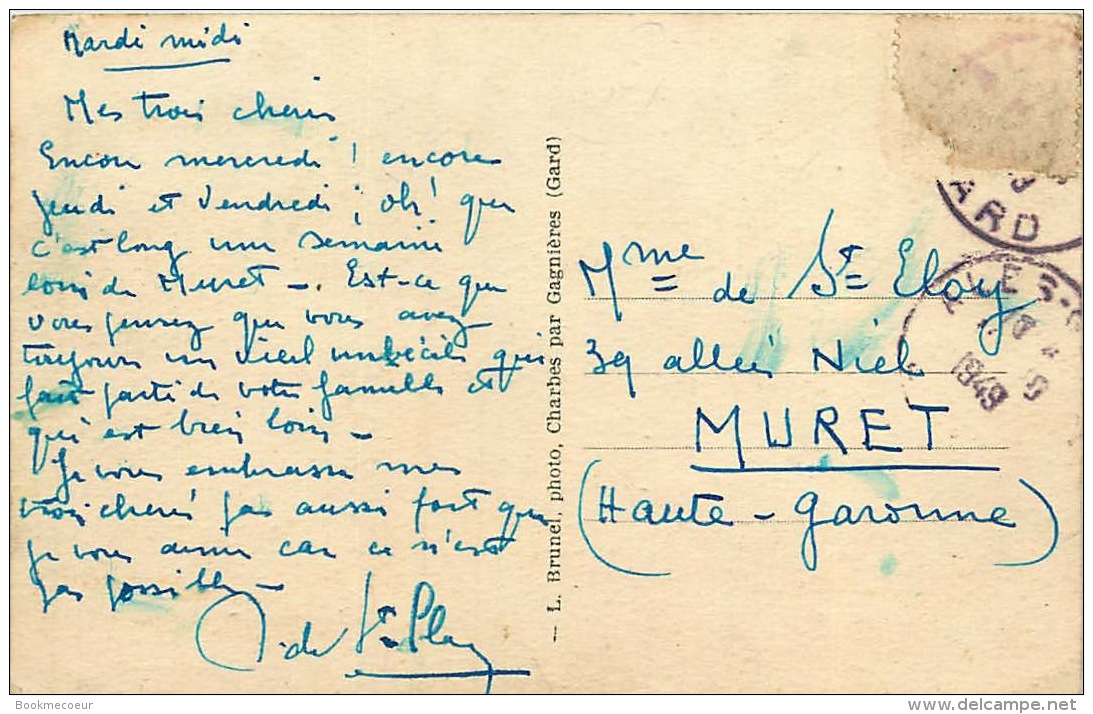 Mardi midi
Mes trois cheris
Encore mercredi ! encore
jeudi et vendredi ! oh! que
c'est long une semaine
loin de Muret -. Est-ce que
vous pensez que vous avez
toujours un vieil imbécile qui
fait partie de votre famille et
qui est bien loin -
Je vous embrasse mes
trois cheris pas aussi fort que
je vous aime car ce n'est
pas possible -
J. de St Eloy
— L. Brunel, photo, Charbes par Gagnières (Gard)
ARD
ALES-
1949
Mme de St Eloy
39 allées Niel
MURET
(Haute-Garonne)
Bookmecoeur
delcampe.net